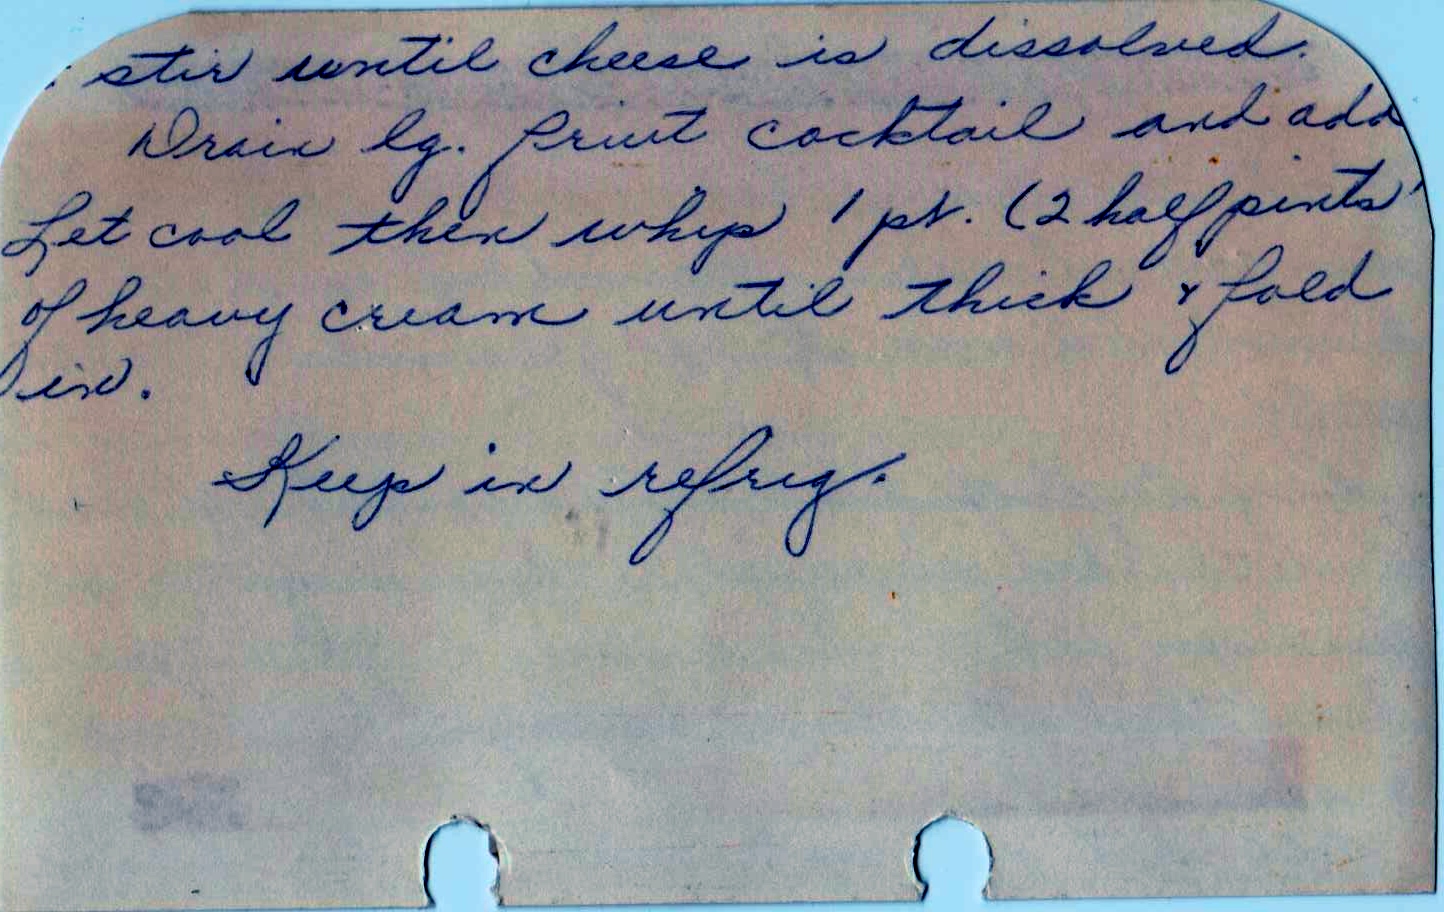 stir until cheese is dissolved.
Drain lg. fruit cocktail and add
Let cool then whip 1 pt. (2 half pints
of heavy cream until thick & fold
in.
Keep in refrig.